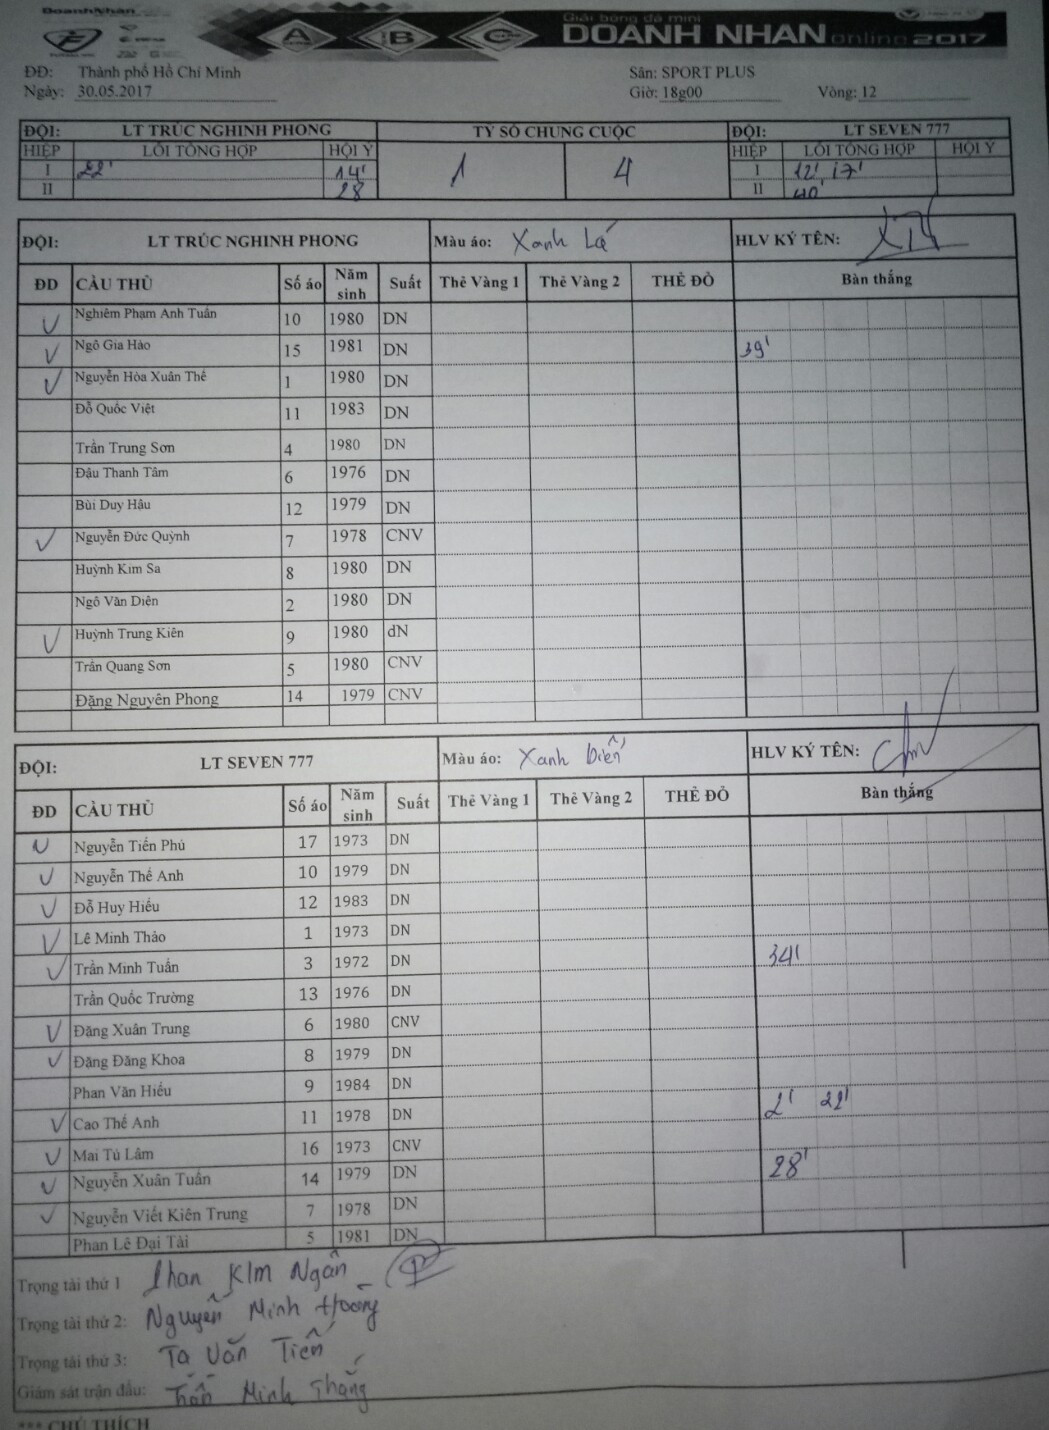 DoanhNhân
A B C
Giải bóng đá mini
DOANH NHAN online 2017
ĐĐ: Thành phố Hồ Chí Minh Sân: SPORT PLUS
Ngày: 30.05.2017 Giờ: 18g00 Vòng: 12
ĐỘI: LT TRÚC NGHINH PHONG TỶ SỐ CHUNG CUỘC ĐỘI: LT SEVEN 777
HIỆP LỖI TỔNG HỢP HỘI Ý 1 4 HIỆP LỖI TỔNG HỢP HỘI Ý
I 22' 14' I 12', 17'
II 28 II 40'
ĐỘI: LT TRÚC NGHINH PHONG Màu áo: Xanh Lá HLV KÝ TÊN:
ĐD CẦU THỦ Số áo Năm sinh Suất Thẻ Vàng 1 Thẻ Vàng 2 THẺ ĐỎ Bàn thắng
Nghiêm Phạm Anh Tuấn 10 1980 DN
Ngô Gia Hào 15 1981 DN 39'
Nguyễn Hòa Xuân Thế 1 1980 DN
Đỗ Quốc Việt 11 1983 DN
Trần Trung Sơn 4 1980 DN
Đậu Thanh Tâm 6 1976 DN
Bùi Duy Hậu 12 1979 DN
Nguyễn Đức Quỳnh 7 1978 CNV
Huỳnh Kim Sa 8 1980 DN
Ngô Văn Diện 2 1980 DN
Huỳnh Trung Kiên 9 1980 dN
Trần Quang Sơn 5 1980 CNV
Đặng Nguyên Phong 14 1979 CNV
ĐỘI: LT SEVEN 777 Màu áo: Xanh biển HLV KÝ TÊN:
ĐD CẦU THỦ Số áo Năm sinh Suất Thẻ Vàng 1 Thẻ Vàng 2 THẺ ĐỎ Bàn thắng
Nguyễn Tiến Phú 17 1973 DN
Nguyễn Thế Anh 10 1979 DN
Đỗ Huy Hiếu 12 1983 DN
Lê Minh Thảo 1 1973 DN
Trần Minh Tuấn 3 1972 DN 34'
Trần Quốc Trường 13 1976 DN
Đặng Xuân Trung 6 1980 CNV
Đặng Đăng Khoa 8 1979 DN
Phan Văn Hiếu 9 1984 DN
Cao Thế Anh 11 1978 DN 2' 22'
Mai Tú Lâm 16 1973 CNV
Nguyễn Xuân Tuấn 14 1979 DN 28'
Nguyễn Viết Kiên Trung 7 1978 DN
Phan Lê Đại Tài 5 1981 DN
Trọng tài thứ 1 Phan Kim Ngân
Trọng tài thứ 2: Nguyễn Minh Hoàng
Trọng tài thứ 3: Tạ Văn Tiến
Giám sát trận đấu: Trần Minh Thắng
*** CHÚ THÍCH